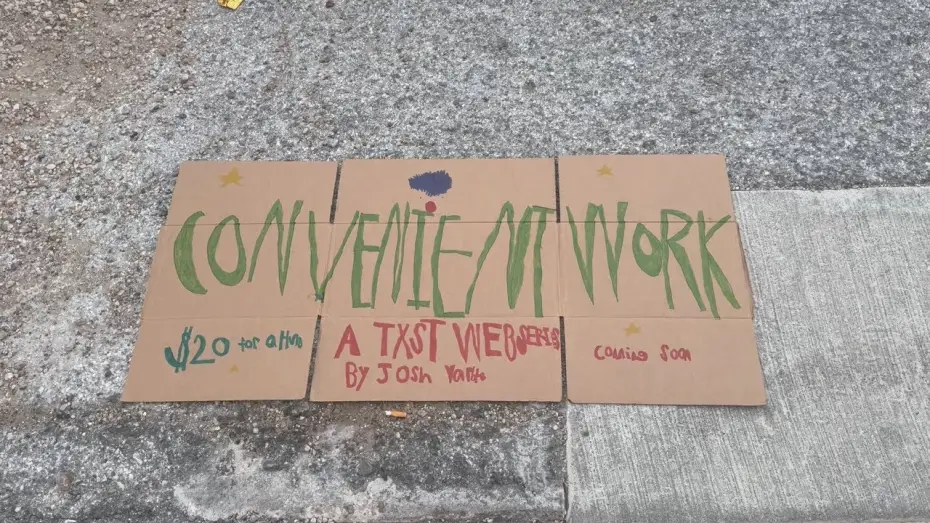 CONVENIENT WORK
$20 for a
A TXST WEBSERIES
BY JOSH
Coming Soon